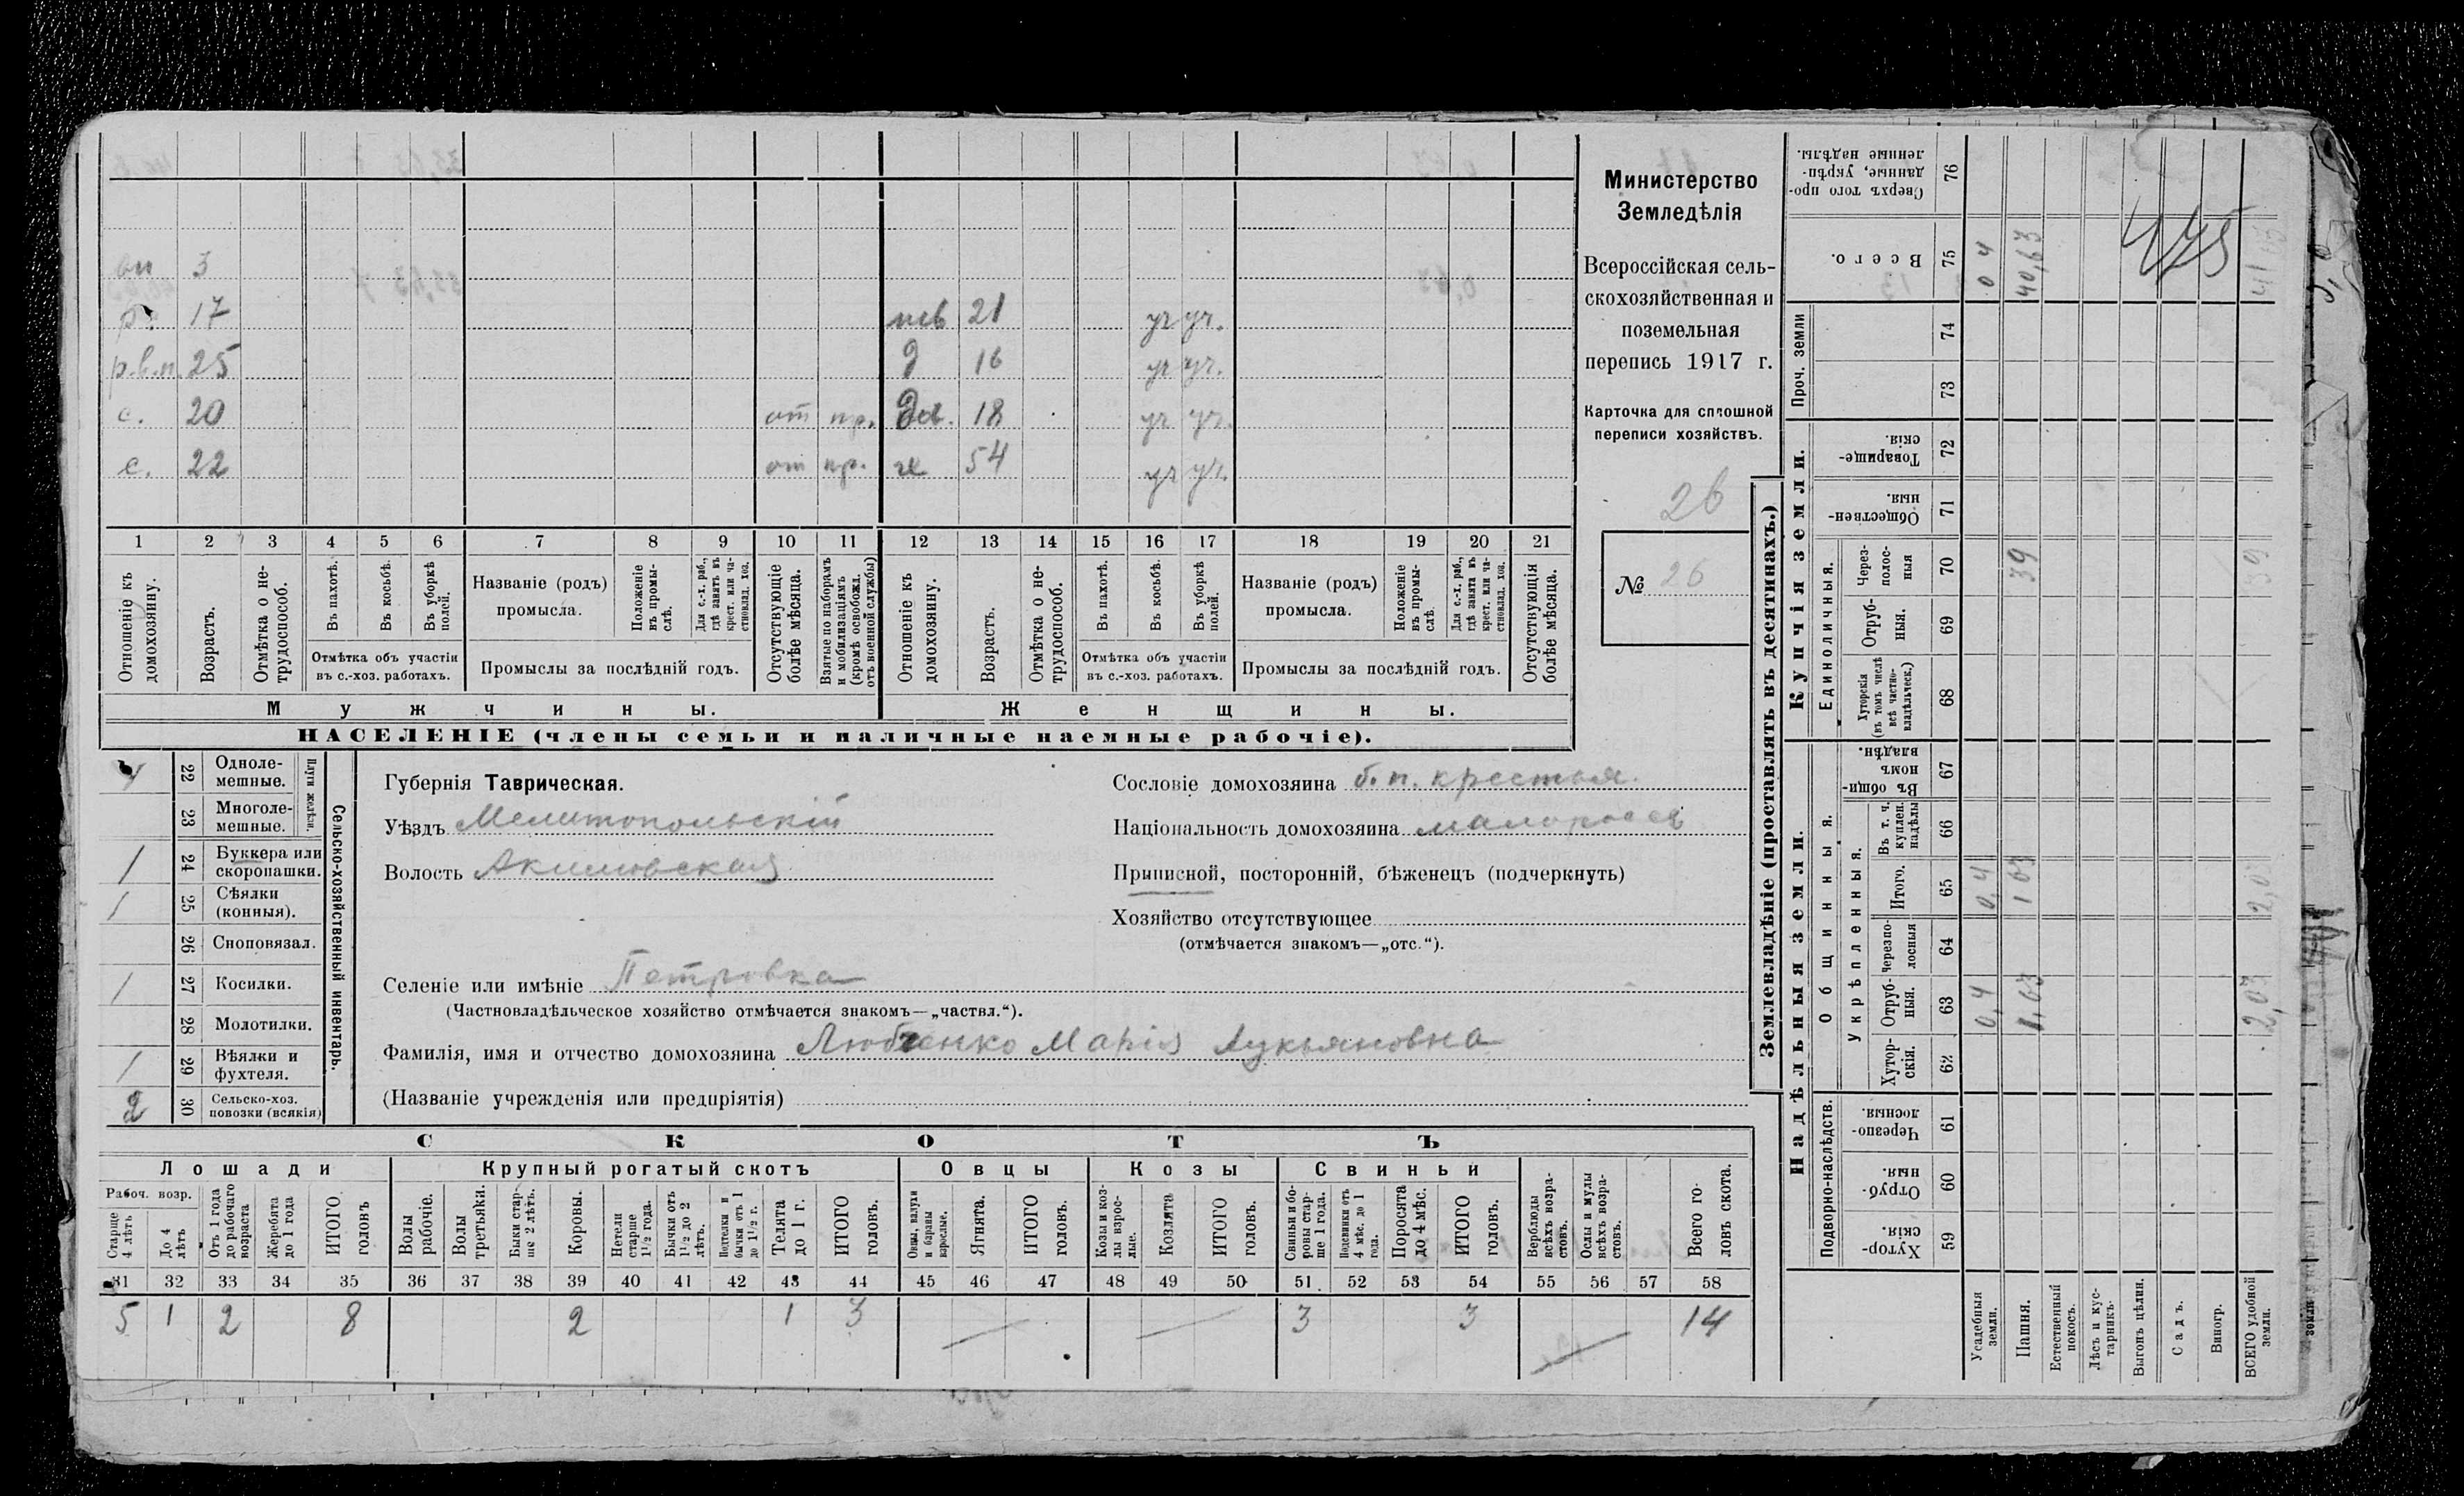 вн 3
р. 17 нев 21 уч уч.
р.в.п. 25 д 16 уч уч.
с. 20 от пр. доч. 18 уч уч.
с. 22 от пр. ж 54 уч уч.
1 2 3 4 5 6 7 8 9 10 11 12 13 14 15 16 17 18 19 20 21
Отношеніе къ домохозяину.
Возрастъ.
Отмѣтка о не-трудоспособ.
Въ пахотѣ.
Въ косьбѣ.
Въ уборкѣ полей.
Отмѣтка объ участіи
въ с.-хоз. работахъ.
Названіе (родъ)
промысла.
Положеніе въ промы-слѣ.
Для с.-х. раб., гдѣ занятъ въ крест. или ча-стновлад. хоз.
Промыслы за послѣдній годъ.
Отсутствующіе болѣе мѣсяца.
Взятые по наборамъ и мобилизаціямъ (кромѣ освобожд. отъ военной службы)
Отношеніе къ домохозяину.
Возрастъ.
Отмѣтка о не-трудоспособ.
Въ пахотѣ.
Въ косьбѣ.
Въ уборкѣ полей.
Отмѣтка объ участіи
въ с.-хоз. работахъ.
Названіе (родъ)
промысла.
Положеніе въ промы-слѣ.
Для с.-х. раб., гдѣ занята въ крест. или ча-стновлад. хоз.
Промыслы за послѣдній годъ.
Отсутствующія болѣе мѣсяца.
Мужчины. Женщины.
НАСЕЛЕНІЕ (члены семьи и наличные наемные рабочіе).
Министерство
Земледѣлія
Всероссійская сель-
скохозяйственная и
поземельная
перепись 1917 г.
Карточка для сплошной
переписи хозяйствъ.
26
№ 26
22 Одноле-мешные.
23 Многоле-мешные.
Плуги желѣз.
1 24 Буккера или скоропашки.
1 25 Сѣялки (конныя).
26 Сноповязал.
1 27 Косилки.
28 Молотилки.
1 29 Вѣялки и фухтеля.
2 30 Сельско-хоз. повозки (всякія)
Сельско-хозяйственный инвентарь.
Губернія Таврическая.
Уѣздъ Мелитопольскій
Волость Акимовская
Сословіе домохозяина б. п. крестья.
Національность домохозяина малороссъ
Приписной, посторонній, бѣженецъ (подчеркнуть)
Хозяйство отсутствующее
(отмѣчается знакомъ—„отс.“).
Селеніе или имѣніе Петровка
(Частновладѣльческое хозяйство отмѣчается знакомъ—„частвл.“).
Фамилія, имя и отчество домохозяина Любченко Марія Лукьяновна
(Названіе учрежденія или предпріятія)
СКОТЪ
Лошади Крупный рогатый скотъ Овцы Козы Свиньи
Рабоч. возр.
Старше 4 лѣтъ
До 4 лѣтъ
Отъ 1 года до рабочаго возраста
Жеребята до 1 года
ИТОГО головъ
Волы рабочіе.
Волы третьяки.
Быки стар-ше 2 лѣтъ.
Коровы.
Нетели старше 1½ года.
Бычки отъ 1½ до 2 лѣтъ.
Подтелки и бычки отъ 1 до 1½ г.
Телята до 1 г.
ИТОГО головъ.
Овцы, валухи и бараны взрослые.
Ягнята.
ИТОГО головъ.
Козы и коз-лы взрос-лые.
Козлята
ИТОГО головъ.
Свиньи и бо-ровы стар-ше 1 года.
Подсвинки отъ 4 мѣс. до 1 года.
Поросята до 4 мѣс.
ИТОГО головъ.
Верблюды всѣхъ возра-стовъ.
Ослы и мулы всѣхъ возра-стовъ.
Всего го-ловъ скота.
31 32 33 34 35 36 37 38 39 40 41 42 43 44 45 46 47 48 49 50 51 52 53 54 55 56 57 58
5 1 2 8 2 1 3 3 3 14
Землевладѣніе (проставлять въ десятинахъ.)
Надѣльныя земли. Купчія земли.
Подворно-наслѣдств.
Общинныя.
Укрѣпленныя.
Единоличныя.
Проч. земли
Хутор-скія. 59
Отруб-ныя. 60
Черезпо-лосныя. 61
Хутор-скія. 62
Отруб-ныя. 63 0,4 1,63 2,03
Черезпо-лосныя 64
Итого. 65 0,4 1 63 2,03
Въ т. ч. куплен. надѣлы 66
Въ общи-номъ владѣн. 67
Хуторскія (въ томъ числѣ всѣ частно-владѣльческ.) 68
Отруб-ныя. 69
Через-полос-ныя 70 39 39
Обществен-ныя. 71
Товарище-скія. 72
73
74
Всего. 75 0 4 40,63 41 03
Сверхъ того про-данные, укрѣп-ленные надѣлы. 76
475
Усадебныя земли.
Пашня.
Естественный покосъ.
Лѣсъ и кус-тарникъ.
Выгонъ цѣлин.
Садъ.
Виногр.
ВСЕГО удобной земли.
земли